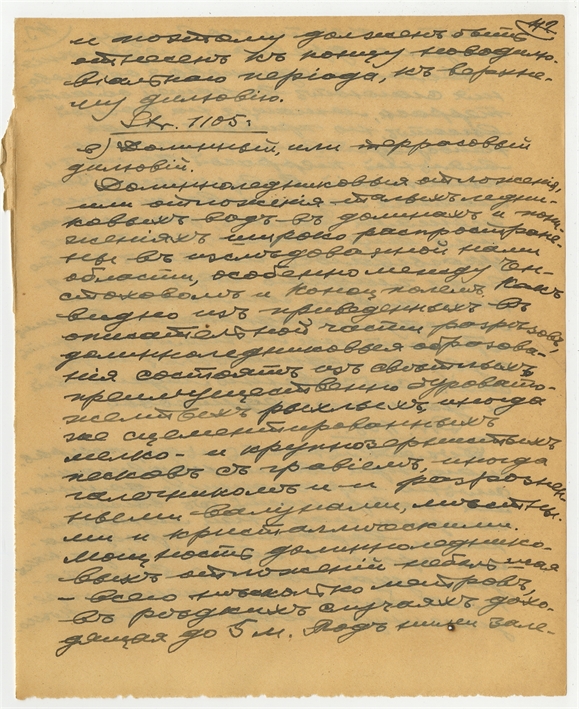 42
и поэтому долженъ быть
отнесенъ къ концу новодилю-
віальнаго періода, къ верхне-
му дилювію.
Str. 1105:
в) Долинный, или террасовый
дилювій.
Долинноледниковыя отложенія,
или отложенія талыхъ ледни-
ковыхъ водъ въ долинахъ и пони-
женіяхъ широко распростране-
ны въ изслѣдованной нами
области, особенно между Чен-
стоховомъ и Конецполемъ. Какъ
видно изъ приведенныхъ въ
описательной части разрѣзовъ,
долинноледниковыя образова-
нія состоятъ изъ свѣтлыхъ
преимущественно буровато-
желтыхъ рыхлыхъ иногда
же сцементированныхъ
мелко- и крупнозернистыхъ
песковъ съ гравіемъ, иногда
галечникомъ и и разрознен-
ными валунами, мѣстны-
ми и кристаллическими.
Мощность долинноледнико-
выхъ отложеній небольшая
- всего нѣсколько метровъ,
въ рѣдкихъ случаяхъ дохо-
дящая до 5 м. Подъ ними зале-